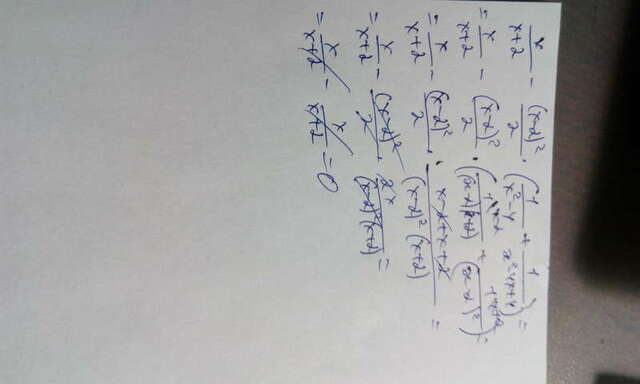 x/(x+2) - (x-2)²/2 · (1/(x²-4) + 1/(x²-4x+4)) =
= x/(x+2) - (x-2)²/2 · (1/((x-2)(x+2)) + 1/(x-2)²) =
= x/(x+2) - (x-2)²/2 · (x-2+x+2)/((x-2)²(x+2)) =
= x/(x+2) - (x-2)²/2 · 2x/((x-2)²(x+2)) =
= x/(x+2) - x/(x+2) = 0